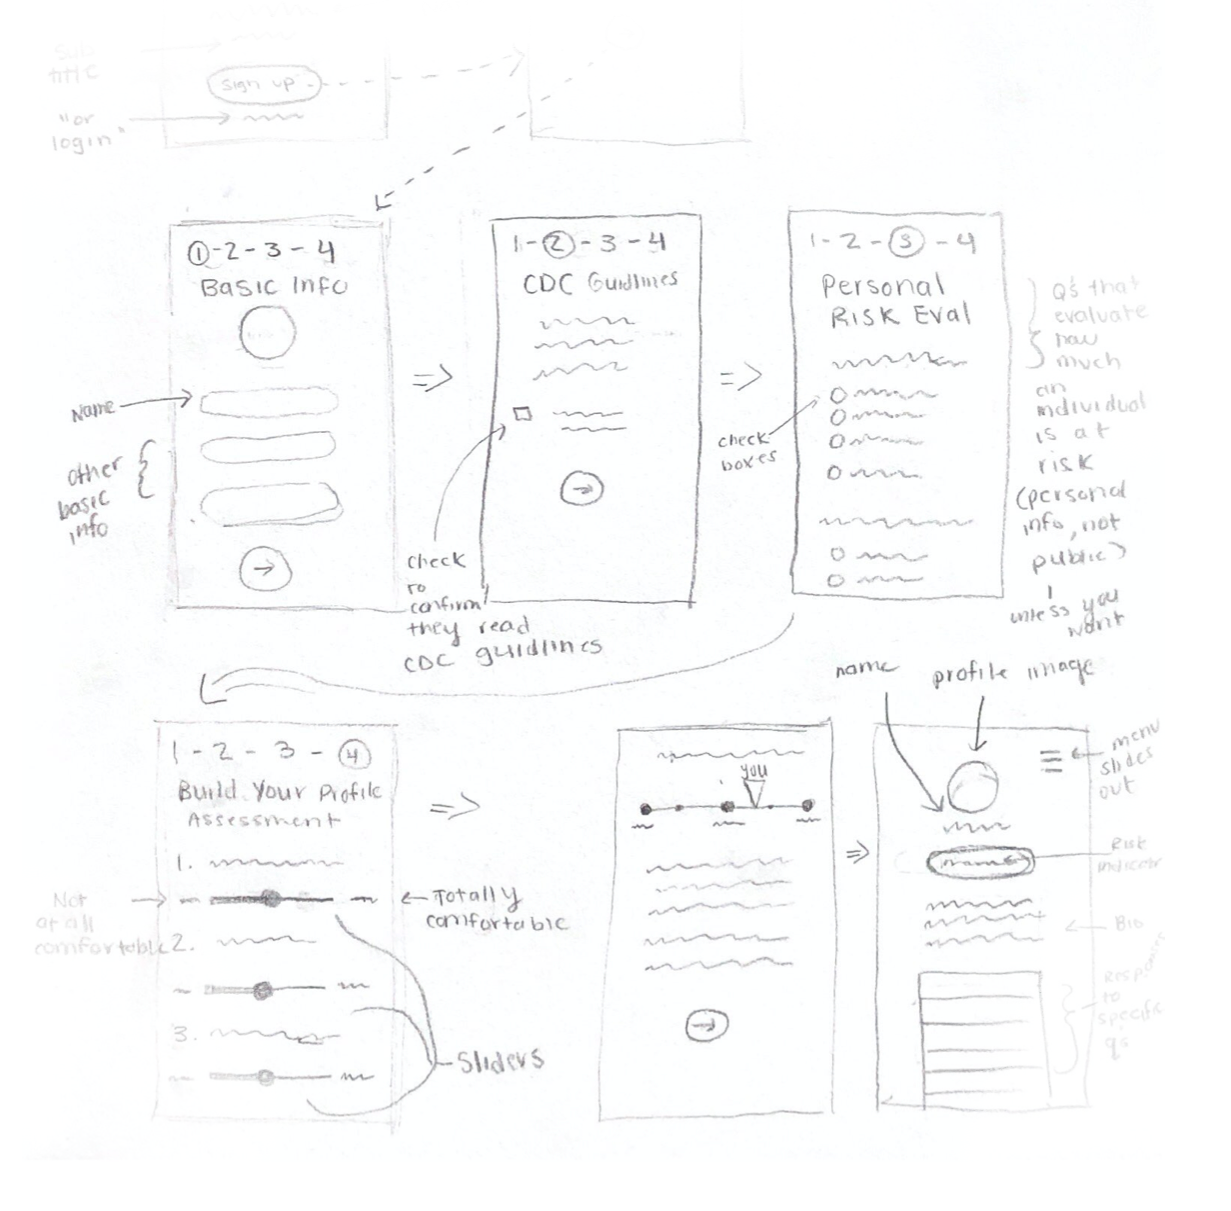 Sub
title
sign up
"or
login"
1-2-3-4
Basic Info
Name
other
basic
info
1-2-3-4
CDC Guidlines
check
to
confirm
they read
CDC guidlines
1-2-3-4
Personal
Risk Eval
check
boxes
Q's that
evaluate
how
much
an
individual
is at
risk
(personal
info, not
public)
unless you
want
1-2-3-4
Build Your Profile
Assessment
1.
Not
at all
comfortable
Totally
comfortable
2.
3.
Sliders
you
name
profile image
menu
slides
out
Risk
indicator
Bio
Responses
to
specific
q's